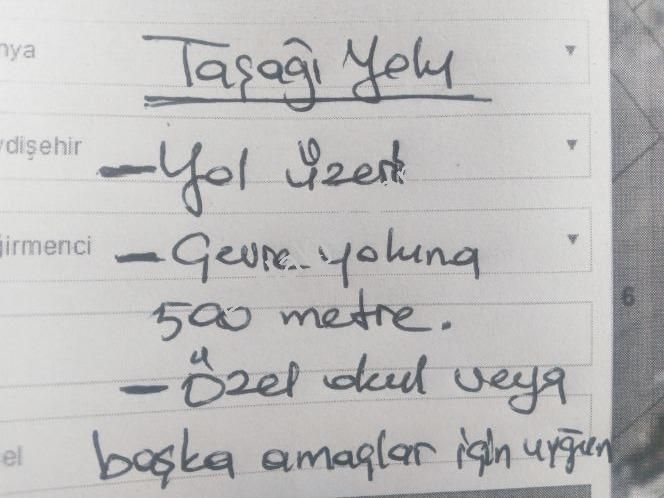 nya
Taşağı Yolu
ydişehir
- Yol üzeri
ğirmenci
- Çevre yoluna
500 metre.
6
- Özel okul veya
el
başka amaçlar için uygun